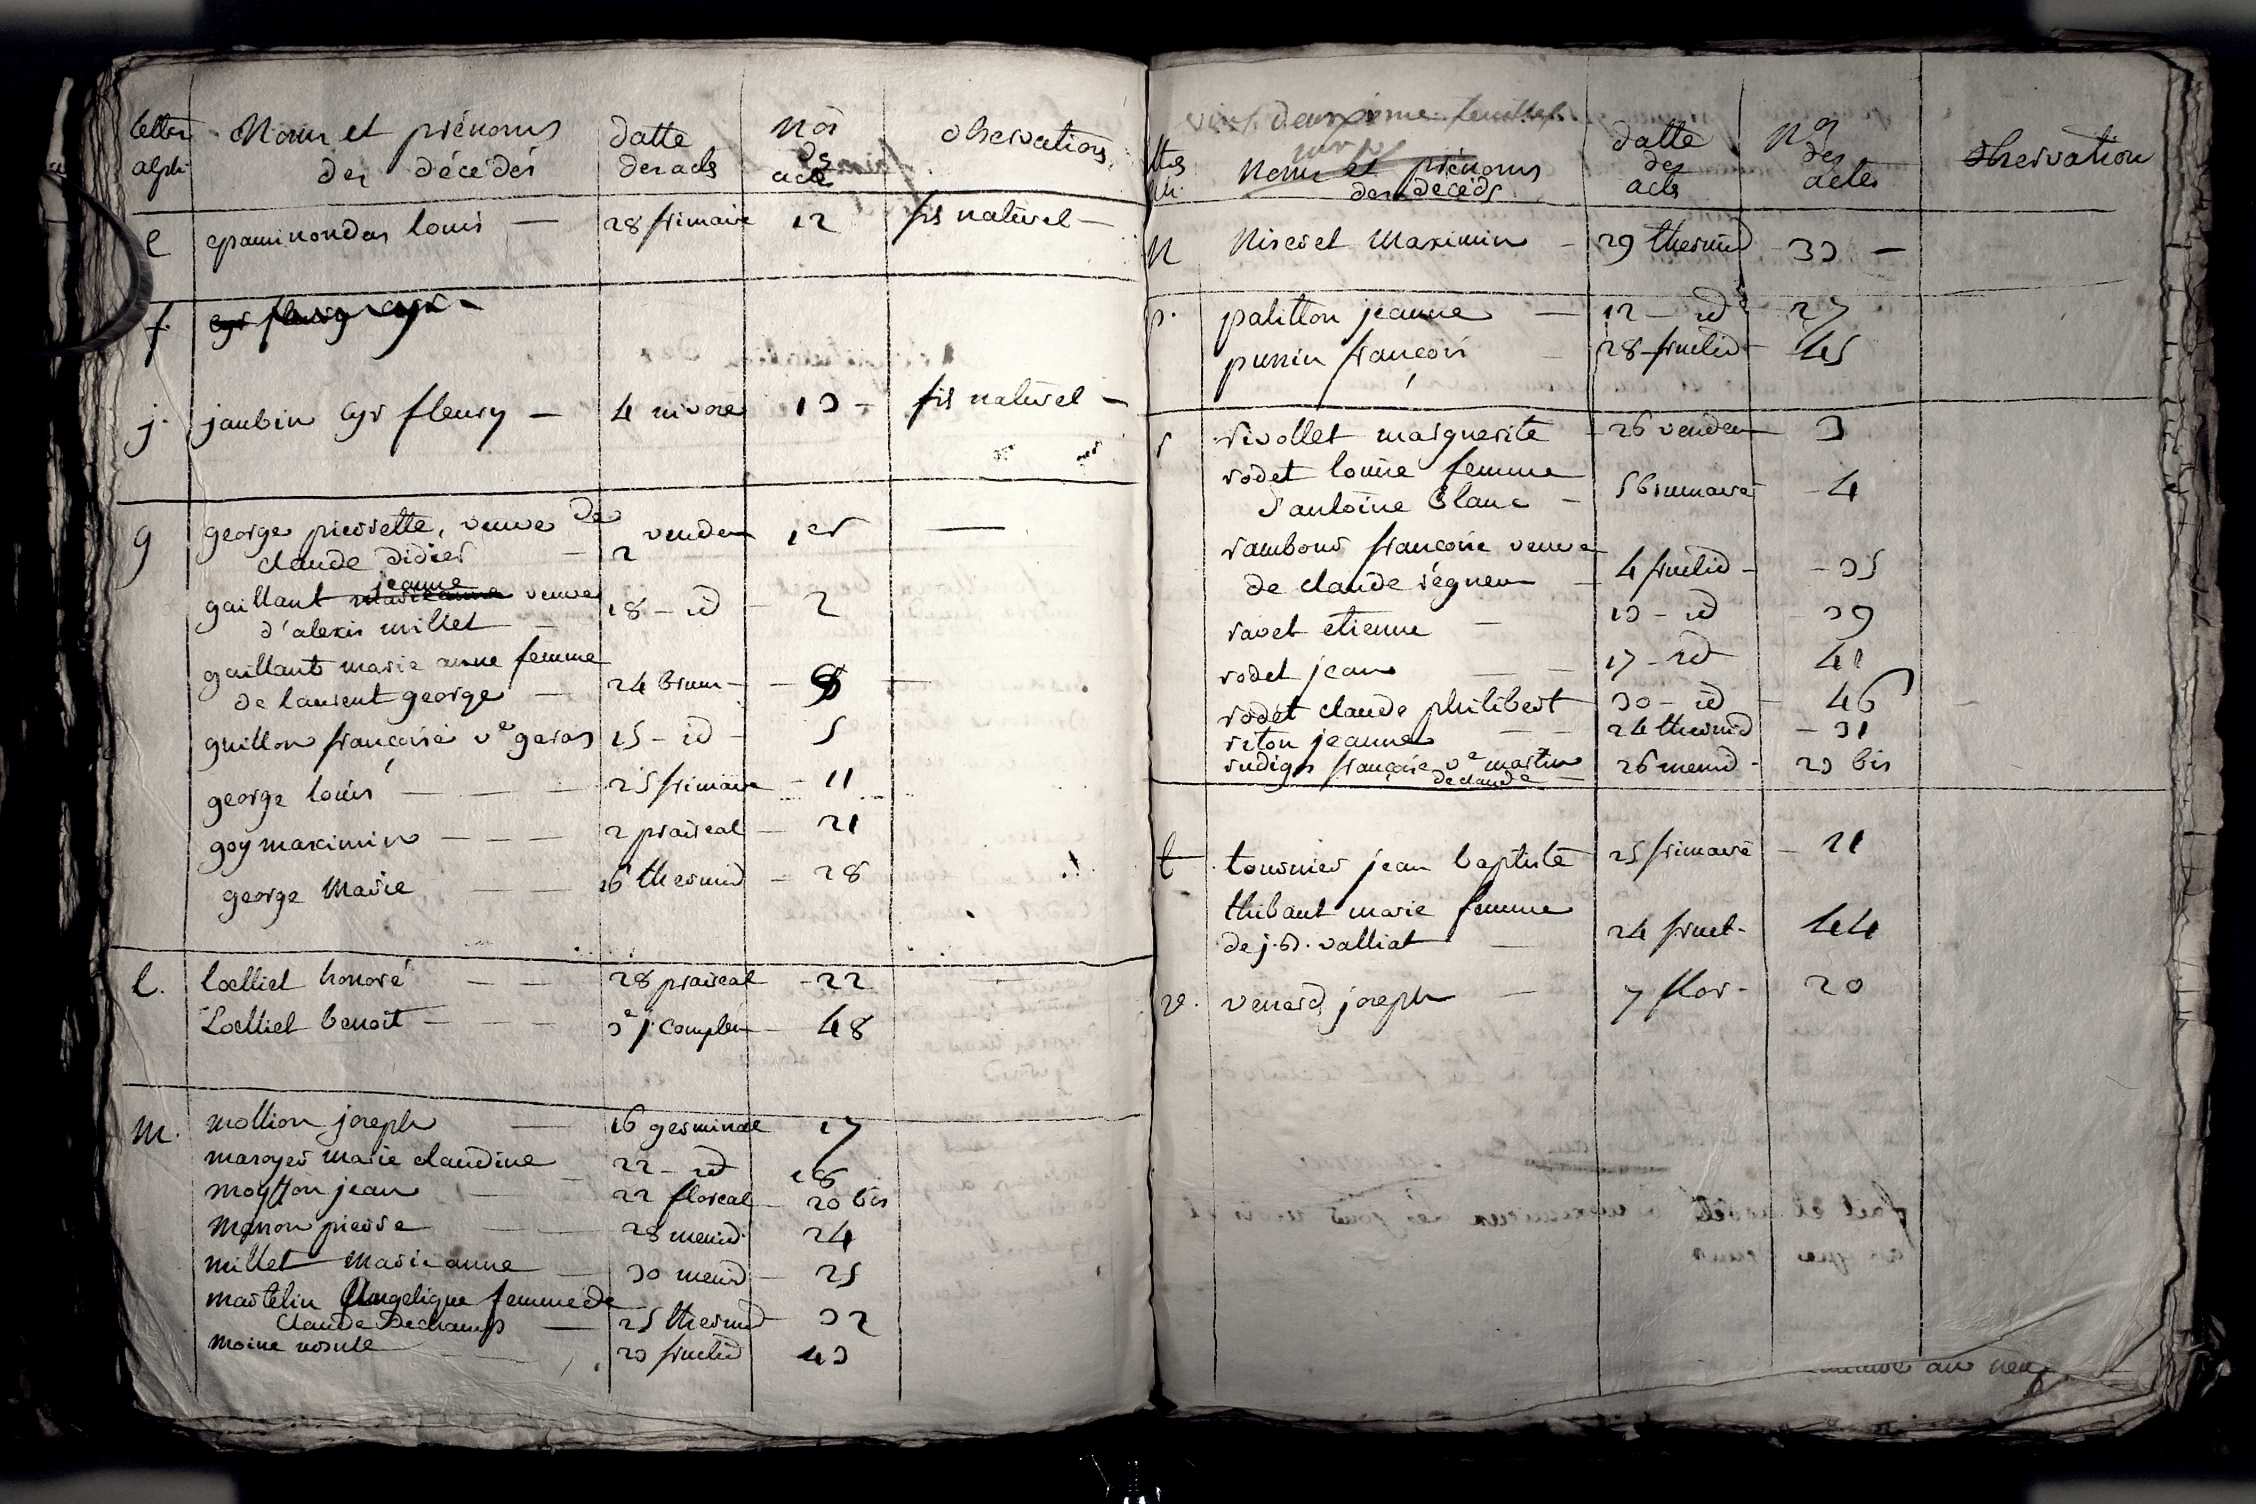 lettres alph. Noms et prénoms des décédés datte des acts Nos des actes observations
e epaminondas louis — 28 frimaire 12 fils naturel —
f.
j. jaubin Cyr fleury — 4 nivose 13 — fils naturel —
g george pierrette, veuve de
claude didier — 2 vendem 1er —
gaillant jeanne veuve
d'alexis millet — 18 – id – 2
gaillant marie anne femme
de laurent george — 24 brum – – 8 —
guillon françoise ve geras 15 – id – 5
george louis — — — 25 frimaire – 11
goy maximin — — — 2 praireal – 21
george Marie — — 16 thermid – 28
l. loelliet honoré — — 28 praireal – 22
Loelliet benoit — — — 3e j. complem – 48
m. mollion joseph — 16 germinal 17
maroyer marie claudine — 22 – id 18
moytton jean — 22 floreal – 20 bis
pierre — 28 mesid. 24
millet Marie anne — 30 mesid – 25
martelin Angelique femme de
Claude Dechamp — 25 thermid – 32
moine — 23 fructid 43
deuxieme feuillet
ttres ph. Noms et prénoms des décéds datte des acts Nos des actes observation
n Niseret Maximin – 29 thermid – 33 –
p. palitton jeanne — 12 – id – 27
pussin françois — 28 fructid – 45
r rivollet marguerite – 26 vendem – 3
rodet louise femme
d'antoine Blanc – 5 brumaire – 4
rambour françoise veuve
de claude régneu — 4 fructid – – 35
ravet etienne — 13 – id – 39
rodet jean — — 17 – id 41
rodet claude philibert 30 – id – 46
reton jeanne — — 24 thermid – 31
françoise ve martin
de claude — 26 mesid – 23 bis
t tournier jean baptiste 25 frimaire – 11
thibaut marie femme
de j. B. valliat — 24 fruct – 44
v. venard joseph — 7 flor – 20